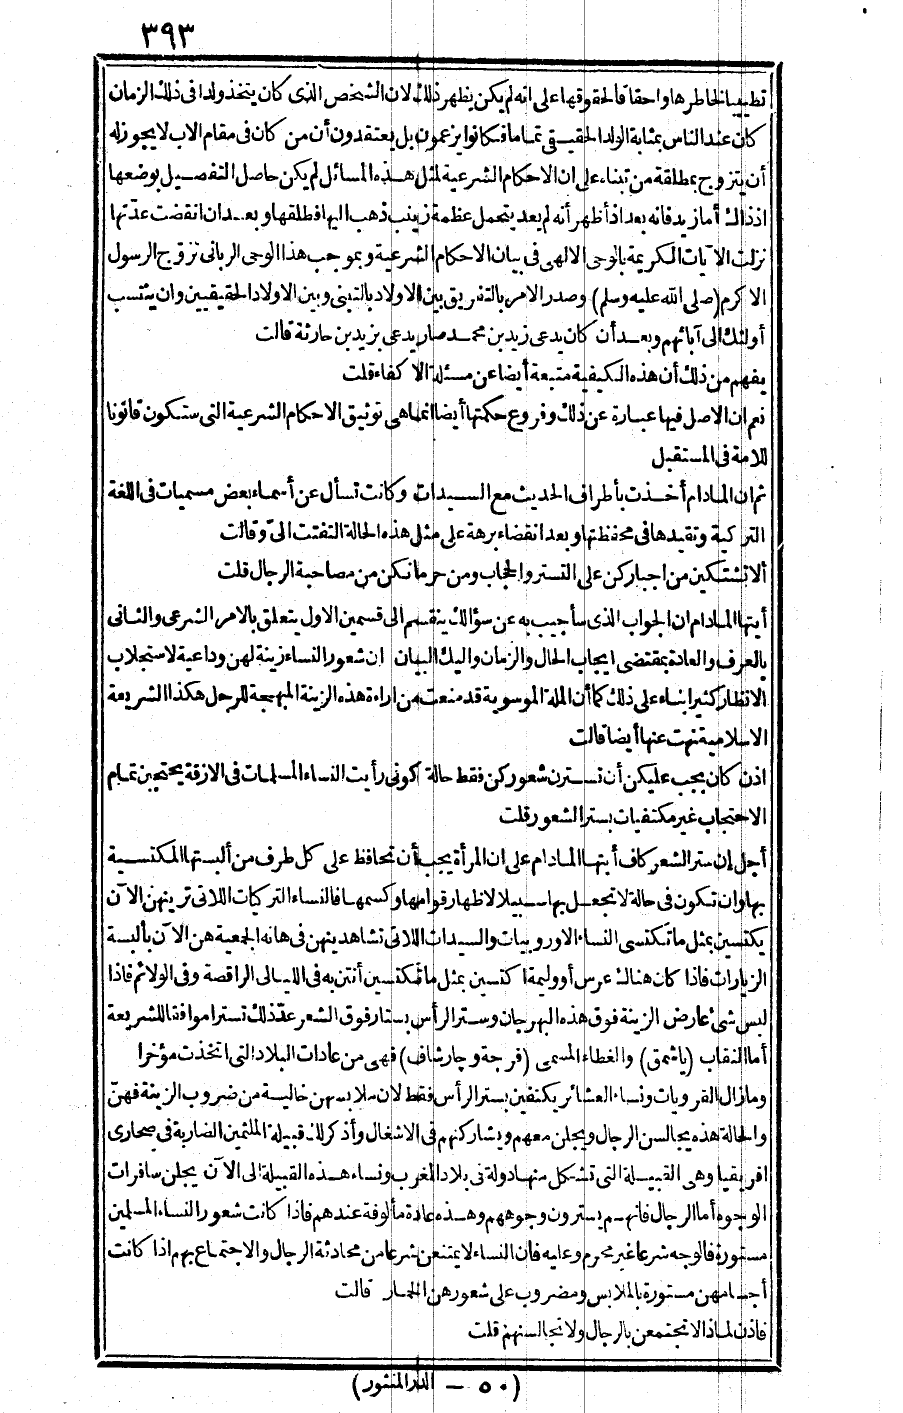 ٣٩٣
تطييبا لخاطرها واحقاقا لحقوقها على انه لم يكن يظهر ذلك لان الشخص الذى كان يتخذ ولدا فى ذلك الزمان
كان عند الناس بمثابة الولد الحقيقى تماما فكانوا يزعمون بل يعتقدون أن من كان فى مقام الاب لا يجوز له
أن يتزوج بمطلقة من تبناه على ان الاحكام الشرعية لمثل هذه المسائل لم يكن حاصل التفصيل بوضعها
اذ ذاك أما زيد فانه بعد اذ أظهر أنه لم يعد يتحمل عظمة زينب ذهب اليها فطلقها وبعد ان انقضت عدتها
نزلت الآيات الكريمة بالوحى الالهى فى بيان الاحكام الشرعية وبموجب هذا الوحى الربانى تزوج الرسول
الاكرم (صلى الله عليه وسلم) وصدر الامر بالتفريق بين الاولاد بالتبنى وبين الاولاد الحقيقيين وان ينتسب
أولئك الى آبائهم وبعد أن كان يدعى زيد بن محمد صار يدعى بزيد بن حارثة قالت
يفهم من ذلك أن هذه الكيفية متبعة أيضا عن مسئلة الاكفاء قلت
نعم ان الاصل فيها عبارة عن ذلك وفروع حكمتها أيضا انما هى توثيق الاحكام الشرعية التى ستكون قانونا
للامة فى المستقبل
ثم ان المادام أخذت بأطراف الحديث مع السيدات وكانت تسأل عن أسماء بعض مسميات فى اللغة
التركية وتقيدها فى محفظتها وبعد انقضاء برهة على مثل هذه الحالة التفتت الىّ وقالت
ألا تشتكين من اجباركن على التستر والحجاب ومن حرمانكن من مصاحبة الرجال قلت
أيتها المادام ان الجواب الذى سأجيب به عن سؤالك ينقسم الى قسمين الاول يتعلق بالامر الشرعى والثانى
بالعرف والعادة بمقتضى ايجاب الحال والزمان واليك البيان ان شعور النساء زينة لهن وداعية لاستجلاب
الانظار كثيرا بناء على ذلك كما أن الملة الموسوية قد منعت من اراءة هذه الزينة المبهجة للرجل هكذا الشريعة
الاسلامية نهت عنها أيضا قالت
اذن كان يجب عليكن أن تسترن شعوركن فقط حالة كونى رأيت النساء المسلمات فى الازقة يحتجبن تمام
الاحتجاب غير مكتفيات بستر الشعور قلت
أجل ان ستر الشعر كاف أيتها المادام على ان المرأة يجب أن تحافظ على كل طرف من ألبستها المكتسية
بها وان تكون فى حالة لا تجعل بها سبيلا لاظهار قوامها وكسمها فالنساء التركيات اللاتى ترينهن الآن
يكتسين بمثل ما تكتسى النساء الاوروبيات والسيدات اللاتى تشاهدينهن فى هاته الجمعية هن الآن بألبسة
الزيارات فاذا كان هناك عرس أو وليمة اكتسين بمثل ما تكتسين أنتن به فى الليالى الراقصة وفى الولائم فاذا
لبس شئ عارض الزينة فوق هذه البهرجان وستر الرأس بستار فوق الشعر عدّ ذلك تسترا موافقا للشريعة
أما النقاب (ياشمق) والغطاء المسمى (فرجة وچارشاف) فهى من عادات البلاد التى اتخذت مؤخرا
وما زال القرويات ونساء العشائر يكتفين بستر الرأس فقط لان ملابسهن خالية من ضروب الزينة فهنّ
والحالة هذه يجالسن الرجال ويجلن معهم ويشاركنهم فى الاشغال وأذكر لك قبيلة الملثمين الضاربة فى صحارى
افريقيا وهى القبيلة التى تشكل منها دولة فى بلاد المغرب ونساء هذه القبيلة الى الآن يجلن سافرات
الوجوه أما الرجال فانهم يسترون وجوههم وهذه عادة مألوفة عندهم فاذا كانت شعور النساء المسلمين
مستورة فالوجه شرعا غير محرم وعليه فان النساء لا يمتنعن شرعا من محادثة الرجال والاجتماع بهم اذا كانت
أجسامهن مستورة بالملابس ومضروب على شعورهن الخمار قالت
فاذن لماذا لا تجتمعن بالرجال ولا تجالسنهم قلت
(٥٠ — الدر المنثور)